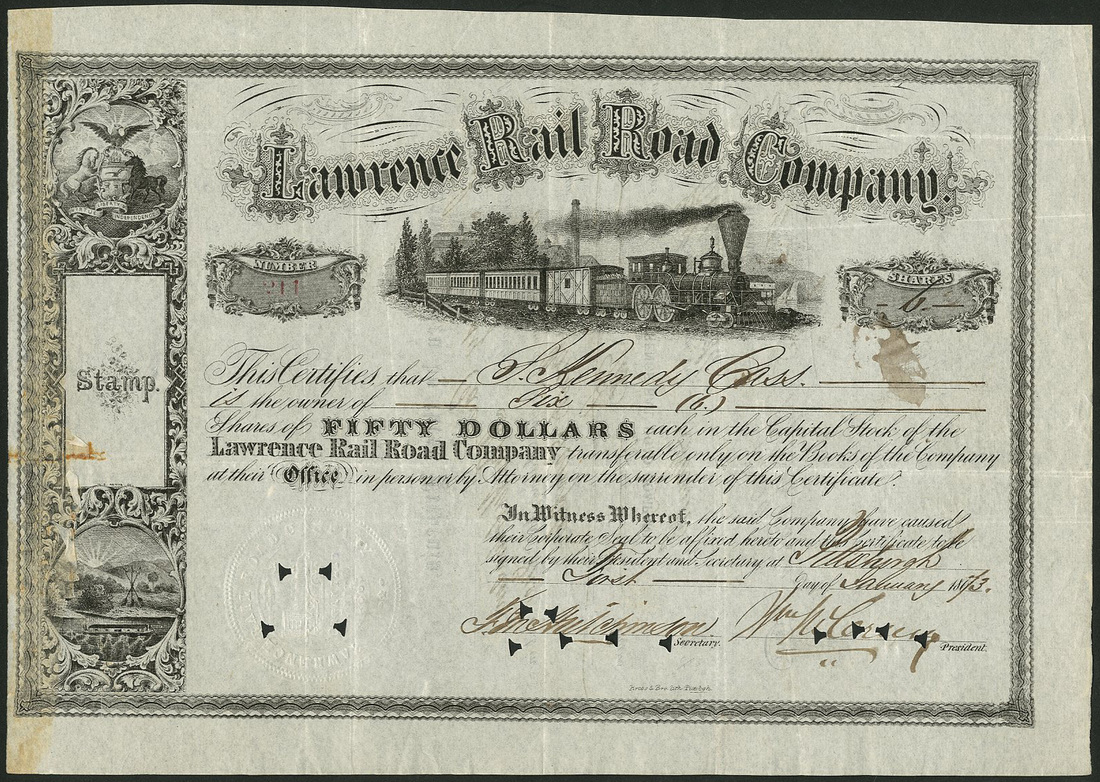 Lawrence Rail Road Company.
LIBERTY INDEPENDENCE
NUMBER
211
SHARES
— 6 —
Stamp.
This Certifies, that — G. Kennedy Cass. —
is the owner of — Six — (6)
Shares of FIFTY DOLLARS each in the Capital Stock of the
Lawrence Rail Road Company transferable only on the Books of the Company
at their Office in person or by Attorney on the surrender of this Certificate.
In Witness Whereof, the said Company have caused
their Corporate Seal to be affixed hereto and this Certificate to be
signed by their President and Secretary at Pittsburgh
— First — day of February 1873.
Hutchinson Secretary.
Wm President.
Bro. Lith. Pittsbgh.